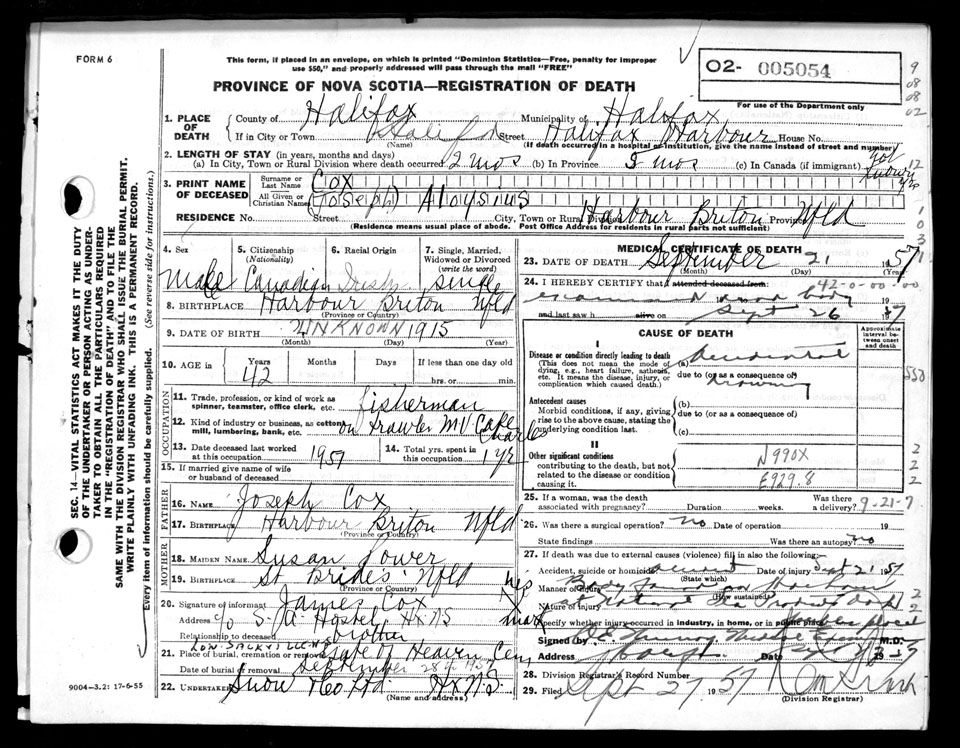 FORM 6
This form, if placed in an envelope, on which is printed "Dominion Statistics—Free, penalty for improper
use $50," and properly addressed will pass through the mail "FREE"
O2- 005054
For use of the Department only
PROVINCE OF NOVA SCOTIA—REGISTRATION OF DEATH
9
08
08
02
1. PLACE OF DEATH
County of Halifax Municipality of Halifax
If in City or Town Halifax Street Halifax Harbour House No.
(Name) (If death occurred in a hospital or institution, give the name instead of street and number)
2. LENGTH OF STAY (in years, months and days)
(a) In City, Town or Rural Division where death occurred 2 mos (b) In Province 5 mos (c) In Canada (if immigrant) Not Known
3. PRINT NAME OF DECEASED
Surname or Last Name Cox
All Given or Christian Names Joseph Aloysius
RESIDENCE No. (Street City, Town or Rural Division Harbour Briton Province Nfld
(Residence means usual place of abode. Post Office Address for residents in rural parts not sufficient)
4. Sex Male
5. Citizenship (Nationality) Canadian
6. Racial Origin Irish
7. Single, Married, Widowed or Divorced (write the word) Single
8. BIRTHPLACE Harbour Briton Nfld
(Province or Country)
9. DATE OF BIRTH UNKNOWN 1915
(Month) (Day) (Year)
10. AGE in Years 42 Months Days If less than one day old
hrs. or min.
OCCUPATION
11. Trade, profession, or kind of work as spinner, teamster, office clerk, etc. fisherman
12. Kind of industry or business, as cotton mill, lumbering, bank, etc. on trawler M.V. Cape Charles
13. Date deceased last worked at this occupation 1957
14. Total yrs. spent in this occupation 1 yr
15. If married give name of wife or husband of deceased
FATHER
16. NAME Joseph Cox
17. BIRTHPLACE Harbour Briton Nfld
(Province or Country)
MOTHER
18. MAIDEN NAME Susan Power
19. BIRTHPLACE St Brides Nfld
(Province or Country)
20. Signature of informant James Cox
Address c/o S.A. Hostel Hx N.S
Relationship to deceased brother
21. Place of burial, cremation or removal Gate of Heaven Cem
LOW. SACKVILLE N.S
Date of burial or removal September 28th 1957
22. Undertaker Snow & Co Ltd Hx N.S.
(Name and Address)
MEDICAL CERTIFICATE OF DEATH
23. DATE OF DEATH September 21 1957
(Month) (Day) (Year)
24. I HEREBY CERTIFY that I attended deceased from:
42-0-00-00
body
and last saw h alive on Sept 26 1957
CAUSE OF DEATH
Approximate interval between onset and death
I
Disease or condition directly leading to death
(This does not mean the mode of dying, e.g., heart failure, asthenia, etc. It means the disease, injury, or complication which caused death.)
(a) Accidental
due to (or as a consequence of)
drowning
Antecedent causes
Morbid conditions, if any, giving rise to the above cause, stating the underlying condition last.
(b)
due to (or as a consequence of)
(c)
II
Other significant conditions
contributing to the death, but not related to the disease or condition causing it.
N990X
E929.8
25. If a woman, was the death associated with pregnancy? Duration weeks. Was there a delivery?
9-21-7
26. Was there a surgical operation? no Date of operation 19
State findings Was there an autopsy? no
27. If death was due to external causes (violence) fill in also the following:—
Accident, suicide or homicide? Accident Date of injury Sept 21 1957
(State which)
Manner of injury Body
(How sustained)
Nature of injury at National Sea Products Dock
Specify whether injury occurred in industry, in home, or in public place
Signed by Medical M.D.
Address Date 19
28. Division Registrar's Record Number
29. Filed Sept 27 1957
(Division Registrar)
SEC. 14—VITAL STATISTICS ACT MAKES IT THE DUTY
OF THE UNDERTAKER OR PERSON ACTING AS UNDER-
TAKER TO OBTAIN ALL THE PARTICULARS REQUIRED
IN THE "REGISTRATION OF DEATH" AND TO FILE THE
SAME WITH THE DIVISION REGISTRAR WHO SHALL ISSUE THE BURIAL PERMIT.
WRITE PLAINLY WITH UNFADING INK. THIS IS A PERMANENT RECORD.
Every item of information should be carefully supplied. (See reverse side for instructions.)
9004—3.2: 17-6-55